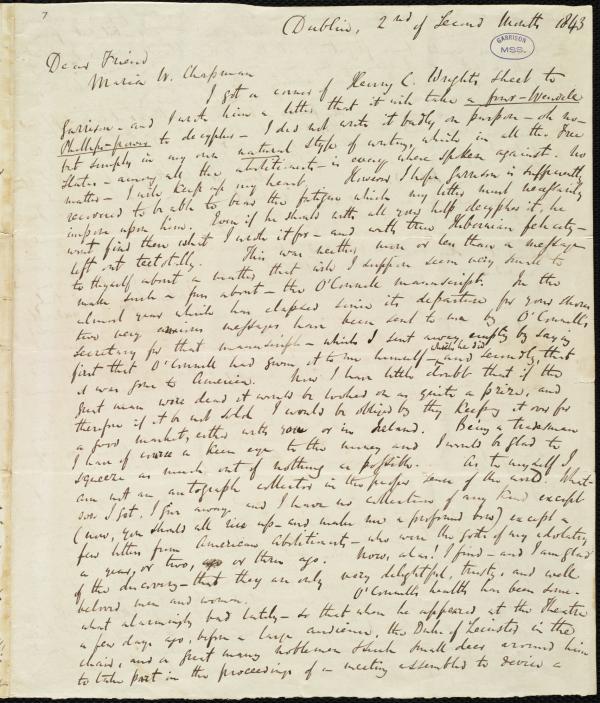 7
Dublin, 2nd of Second Month 1843
GARRISON
MSS.
Dear Friend
Maria W. Chapman
I got a corner of Henry C. Wright's sheet to
Garrison - and I wrote him a letter that it will take a four-Wendell
Phillips-power to decypher - I did not write it badly on purpose - oh no -
but simply in my own natural style of writing, which in all the Free
States - among all the abolitionists - is every where spoken against. No
matter - I will keep up my heart. However I hope Garrison is sufficiently
recovered to be able to bear the fatigue which my letter must necessarily
impose upon him. Even if he should with all your help decypher it, he
wont find there what I wrote it for - and with true Hibernian felicity -
left out teetotally. This was neither more or less than a message
to thyself about a matter that will I suppose seem very small to
make such a fuss about - the O'Connell manuscript. In the
almost year which has elapsed since its departure for your shores
two very anxious messages have been sent to me by O'Connell's
secretary for that manuscript - which I sent away empty by saying
first that O'Connell had given it to me himself - which he did and secondly, that
it was gone to America. Now I have little doubt that if the
great man were dead it would be looked on as quite a prize, and
therefore if it be not sold I would be obliged by thy keeping it over for
a good market, either with you or in Ireland. Being a tradesman
I have of course a keen eye to the money and I would be glad to
squeeze as much out of nothing as possible. As to myself I
am not an autograph collector in the proper sense of the word. What-
ever I get, I give away and I have no collection of any kind except
(now, you should all rise up - and make me a profound bow) except a
few letters from American Abolitionists - who were the gods of my idolatry
a year, or two, or three ago. Now, alas! I find - and I am glad
of the discovery - that they are only very delightful, trusty, and well
beloved men and women. O'Connell's health has been some-
what alarmingly bad lately - so that when he appeared at the Theatre
a few days ago, before a large audience, the Duke of Leinster in the
chair, and a great many noblemen & such small deer around him
to take part in the proceedings of a meeting assembled to devise a